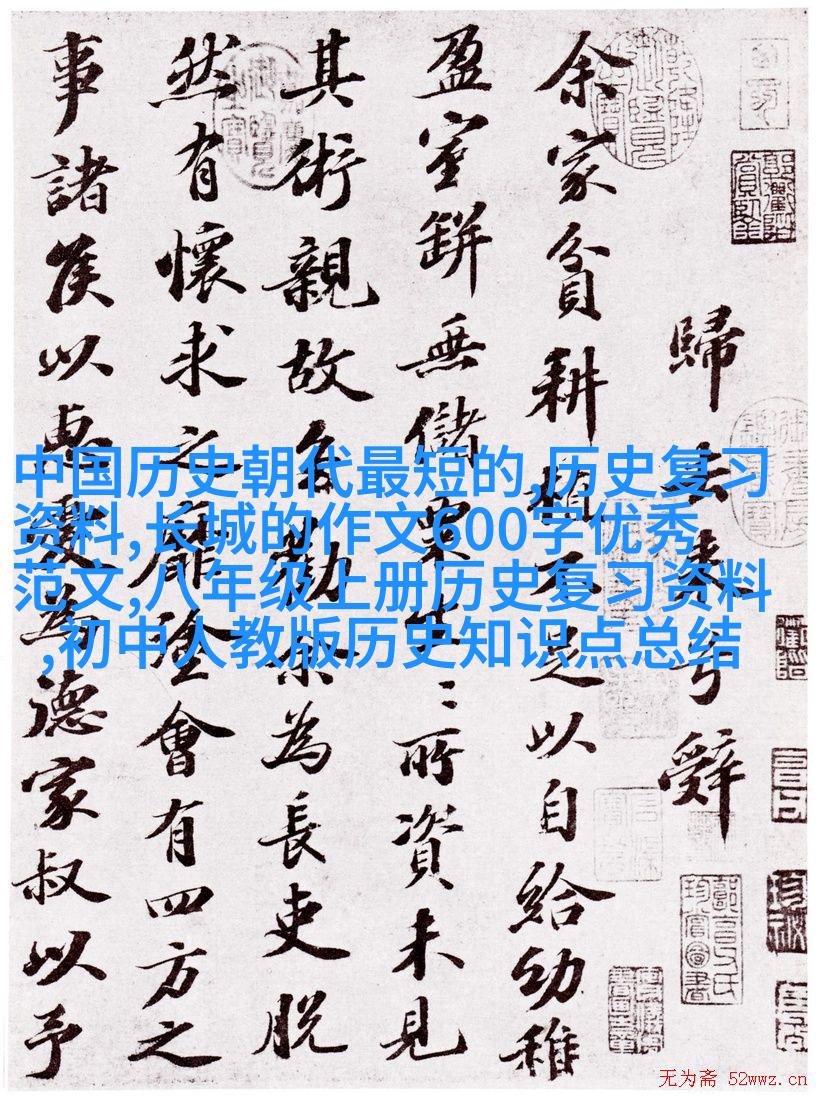 歸去來兮辭
余家貧耕植不足以自給幼稚
盈室缾無儲粟生〻所資未見
其術親故多勸余為長吏脫
然有懷求之靡塗會有四方之
事諸侯以惠愛為德家叔以予
中国历史朝代最短的,历史复习
资料,长城的作文600字优秀
范文,八年级上册历史复习资料
,初中人教版历史知识点总结
无为斋 52wwz.cn